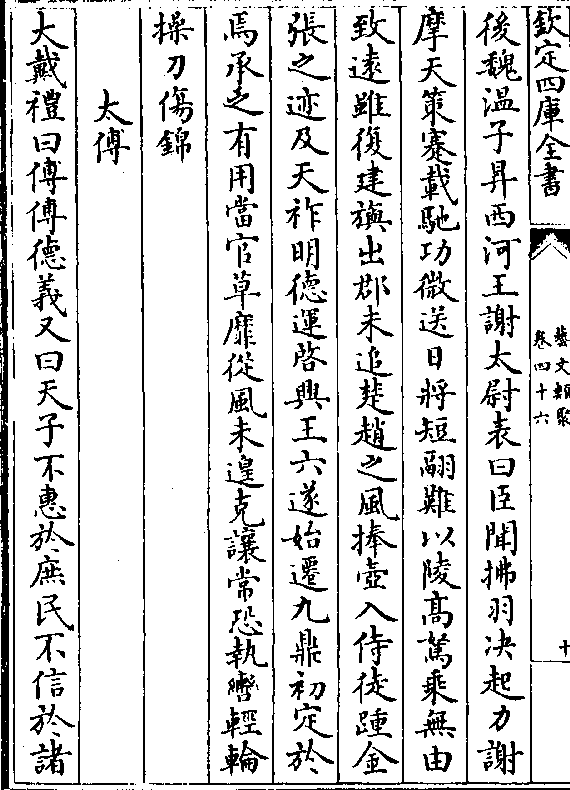 欽定四庫全書
藝文類聚
卷四十六
十
後魏温子昇西河王謝太尉表曰臣聞拂羽決起力謝
摩天策蹇載馳功微送日將短翮難以陵髙駑乘無由
致逺雖復建旟出郡未追楚趙之風捧壺入侍徒踵金
張之迹及天祚明德運啓興王六遂始遷九鼎初定於
焉承乏有用當官草靡從風未遑克讓常恐執轡輕輪
操刀傷錦
太傅
大戴禮曰傅傅德義又曰天子不惠於庶民不信於諸